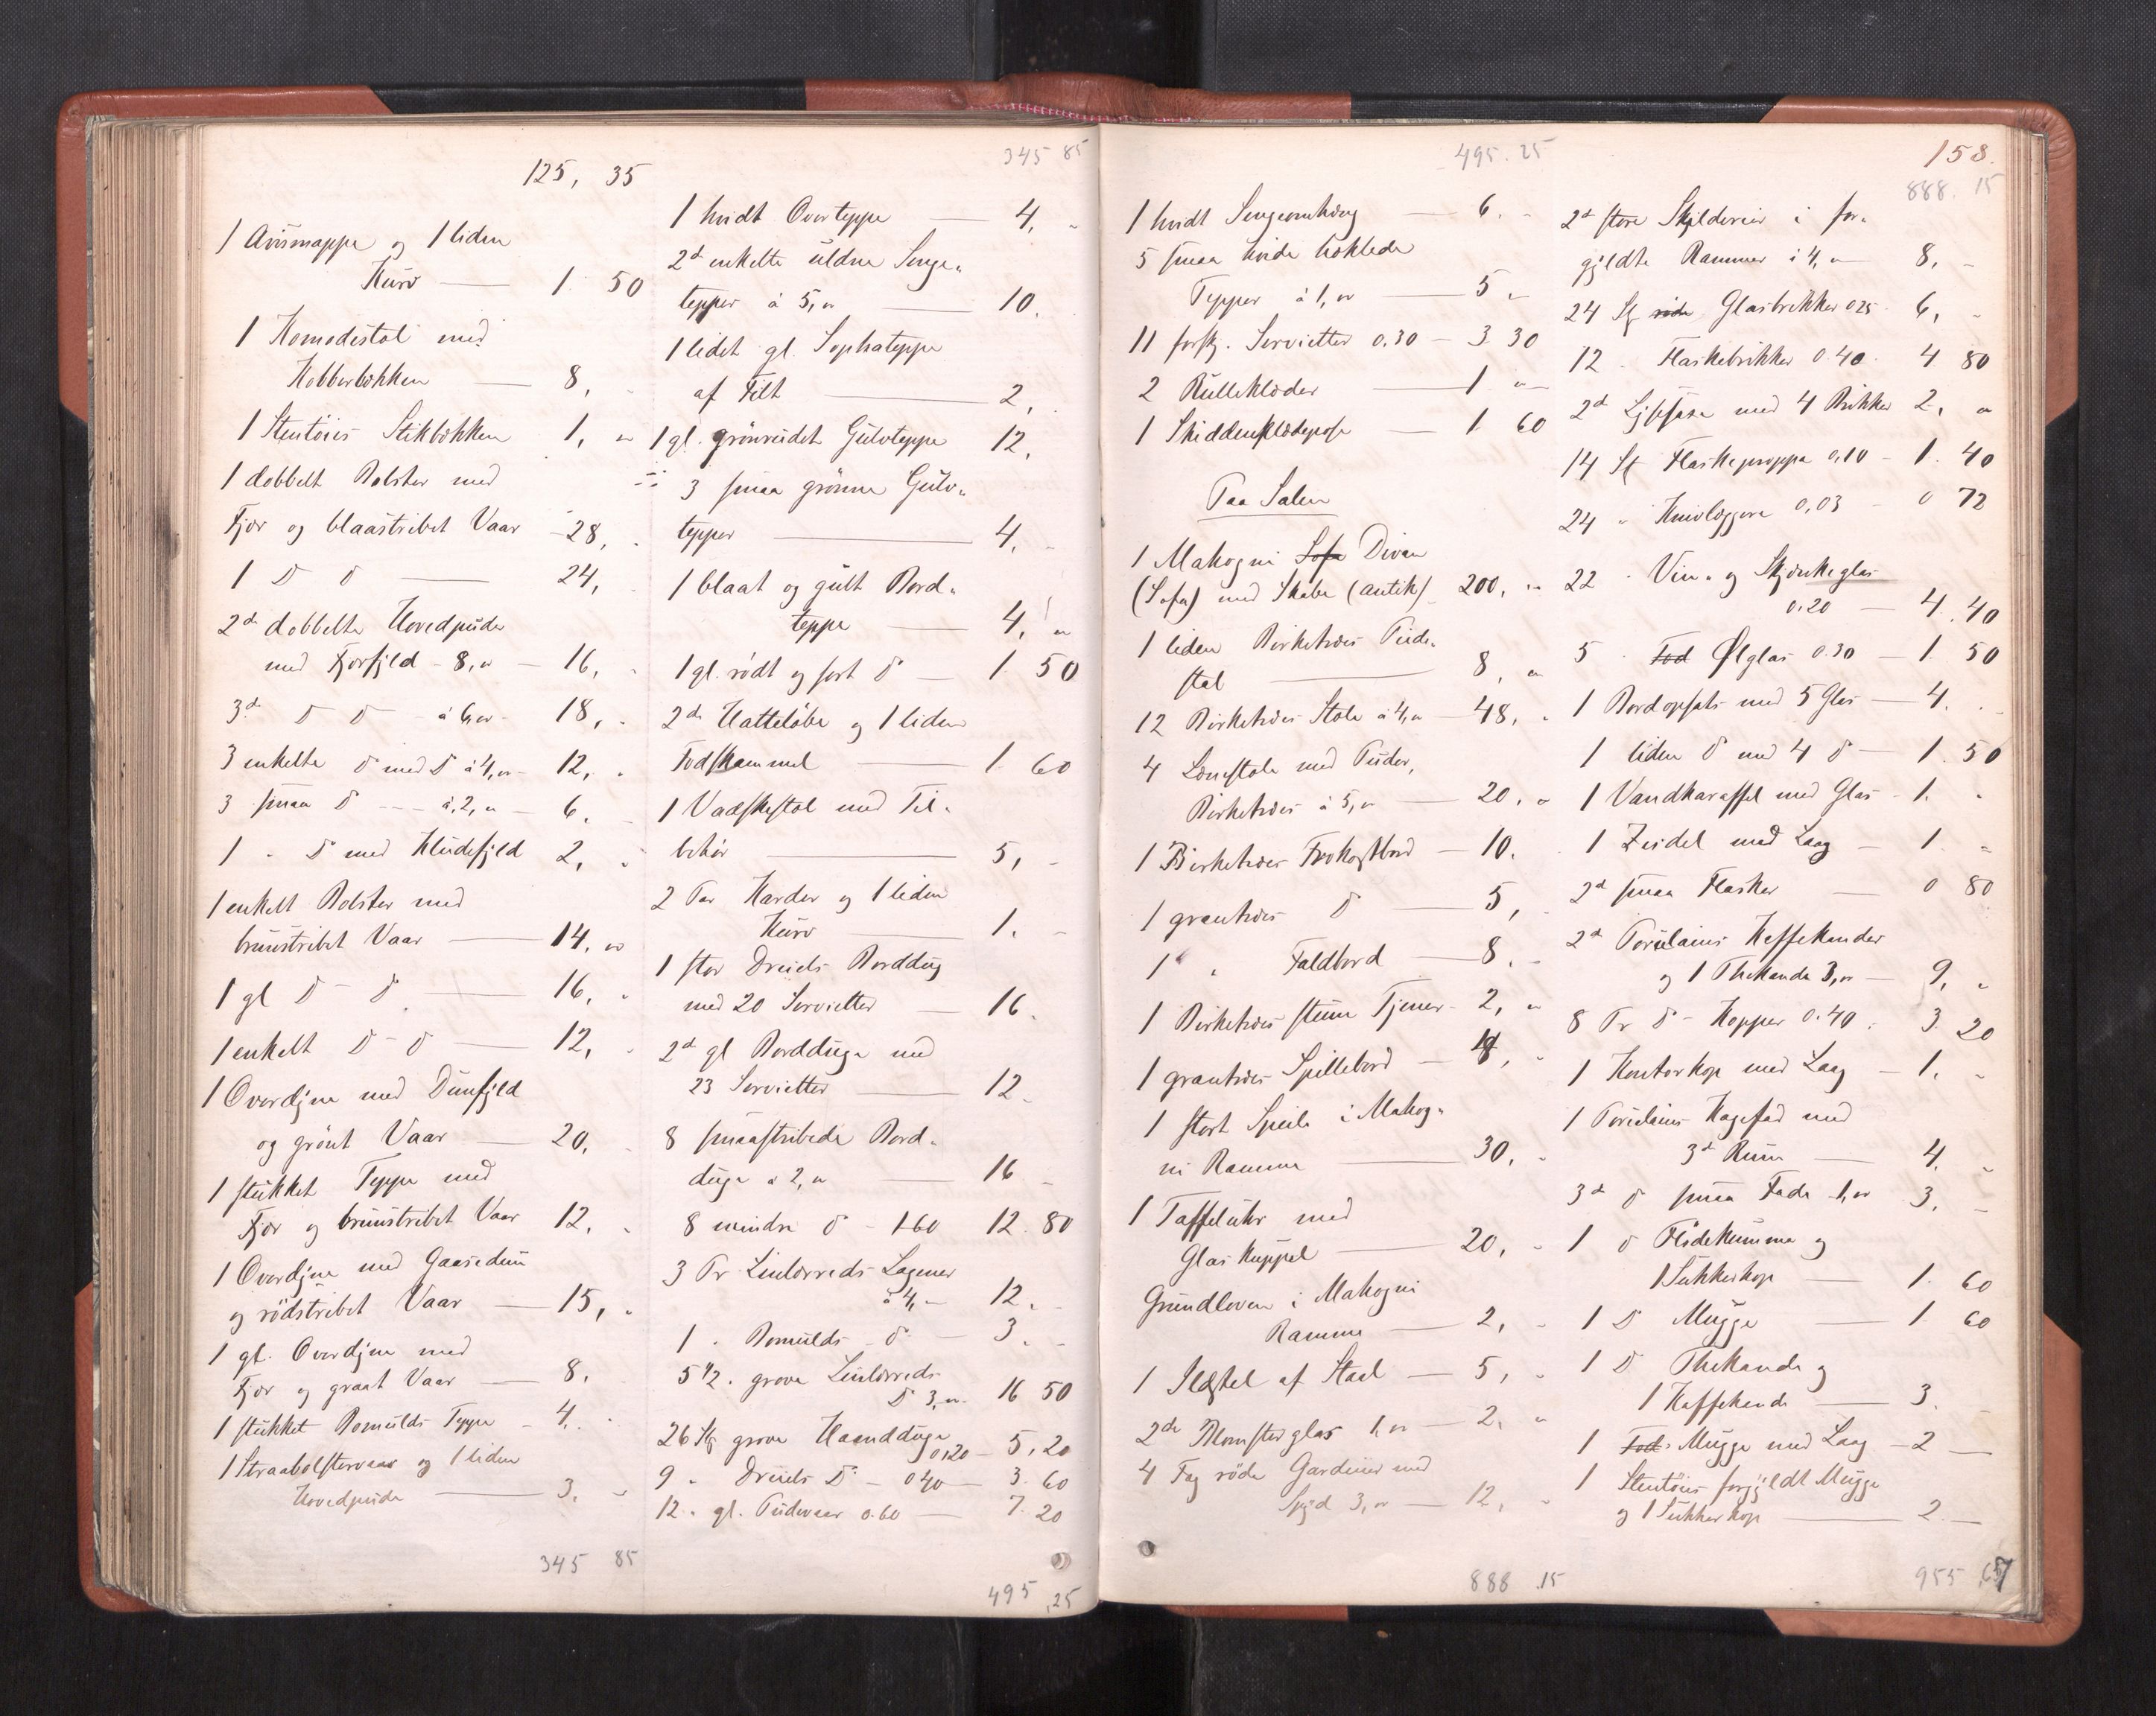 125, 35
1 Avismappe og 1 liden
Kurv — 1. 50
1 Komodestol med
Kobberbækken — 8, "
1 Stentöies Stikbækken 1, "
1 dobbelt Bolster med
Fjær og blaastribet Vaar - 28, "
1 D d — 24, "
2de dobbelte Hovedpuder
med Fjærfyld - 8, " — 16, "
3d D D - à 6, " - 18, "
3 enkelte d med D à 4, " - 12, "
3 smaa d - - - à 2, " - 6, "
1 " D med Kludefyld 2, "
1 enkelt Bolster med
brunstribet Vaar — 14, "
1 gl D - d — 16, "
1 enkelt D - d — 12, "
1 Overdyne med Dunfyld
og grönt Vaar — 20, "
1 stukket Teppe med
Fjær og brunstribet Vaar 12, "
1 Overdyne med Gaasedun
og rödstribet Vaar — 15, "
1 gl. Overdyne med
Fjær og graat Vaar — 8, "
1 stukket Bomulds Teppe - 4. "
1 Straabolstervaar og 1 liden
Hovedpude — 3. "
345 85
345 85
1 hvidt Overteppe — 4, "
2d enkelte uldne Senge"
tepper à 5, " — 10.
1 lidet gl. Sophateppe
af Filt — 2,
1 gl. grönrudet Gulvteppe 12,
3 smaa grönne Gulv"
tepper — 4, "
1 blaat og gult Bord"
teppe — 4, "
1 gl. rödt og sort d — 1 50
2de Hatteløbe og 1 liden
Fodskammel — 1. 60
1 Vadskestol med Til"
behör — 5, "
2 Par Karder og 1 liden
Kurv — 1. "
1 stor Dreiels Borddug
med 20 Servietter — 16.
2d gl Border Borddug med
23 Servietter — 12 "
8 smaastribede Bord"
duge à 2, " — 16 "
8 mindre d - 1.60 12. 80
3 Pr Linlærreds Lagener
à 4, " 12. "
1 " Bomulds d — 3. "
5 1/2 " grove Linlærreds
D 3, " 16 50
26 Stk grove Haandduge
0,20 - 5, 20
9 " Dreiels D - 0 40 - 3. 60
12 " gl. Pudevaar 0.60 — 7. 20
495, 25
495. 25
1 hvidt Sengeomhæng — 6. "
5 smaa hvide hæklede
Tepper à 1, " — 5 "
11 forskj. Servietter 0.30 - 3. 30
2 Rulleklæder — 1 "
1 Skiddentklædepose — 1. 60
Paa Salen
1 Mahogni Sofa Divan
(Sofa) med Skabe (antik) 200, "
1 liden Birketræes Pide"
stal — 8, "
12 Birketræes Stole à 4, " 48, "
4 Lænestole med Puder,
Birketræes à 5, " 20, "
1 Birketræes Frokostbord — 10.
1 grantræes d — 5,
1 " Faldbord — 8. "
1 Birketræes stum Tjener - 2, "
1 grantræes Spillebord — 4, "
1 stort Speile i Mahog"
ni Ramme — 30, "
1 Taffeluhr med
Glas Kuppel — 20, "
Grundloven i Mahogni
Ramme — 2, "
1 Ildstel af Staal — 5, "
2de Blomsterglas 1, " — 2. "
4 Fag röde Gardiner med
3, " — 12, "
888 .15
158.
888. 15
2d store Skilderier i for"
gyldte Rammer à 4, " 8, "
24 St röde Glasbrikker 0 25 6, "
12 " Flaskebrikker 0.40 4 80
2d Lyssaxe med 4 Brikker 2, "
14 St Flaskepropper 0,10 - 1. 40
24 " Knivlæggere 0,03 - 0 72
22 " Vin " og Skjænkeglas
0,20 — 4. 40
5 " Fod Ølglas 0.30 — 1. 50
1 Bordopsats med 5 Glas — 4. "
1 liden d med 4 d — 1. 50
1 Vandkaraffel med Glas - 1. "
1 Zeidel med Laag — 1 "
2d smaa Flasker — 0 80
2d Porcelains Kaffekander
og 1 Thekande 3, " — 9, "
8 Pr d - Kopper 0.40. 3. 20
1 Kontorkop med Laag — 1. "
1 Porcelains Kagefad med
3d Rum — 4. "
3d d smaa Fade 1, " 3. "
1 d Flödekumme og
1 Sukkerkop — 1. 60
1 D Mugge — 1 60
1 D Thekande og
1 Kaffekande — 3. "
1 Fod. Mugge med Laag - 2 —
1 Stentöies forgyldt Mugge
og 1 Sukkerkop — 2 —
955 ,67